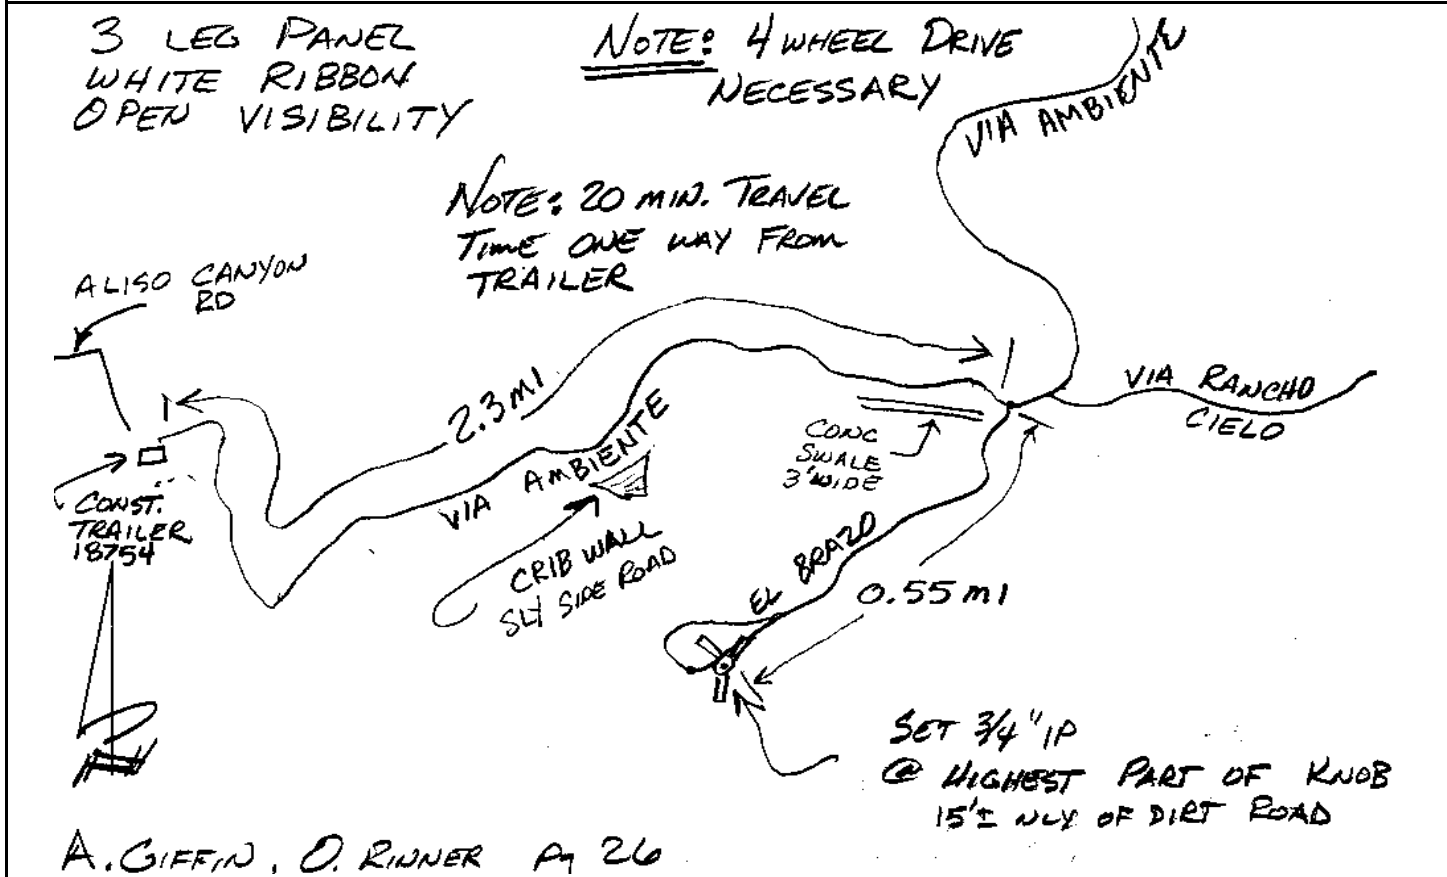 3 LEG PANEL
WHITE RIBBON
OPEN VISIBILITY
NOTE: 4 WHEEL DRIVE
NECESSARY
VIA AMBIENTE
NOTE: 20 MIN. TRAVEL
TIME ONE WAY FROM
TRAILER
ALISO CANYON
RD
2.3 MI
VIA RANCHO
CIELO
CONC
SWALE
3' WIDE
VIA AMBIENTE
CONST.
TRAILER
18754
CRIB WALL
SLY SIDE ROAD
EL BRAZO
0.55 MI
SET 3/4" IP
@ HIGHEST PART OF KNOB
15'± NLY OF DIRT ROAD
A. GIFFIN, O. RINNER Pg 26